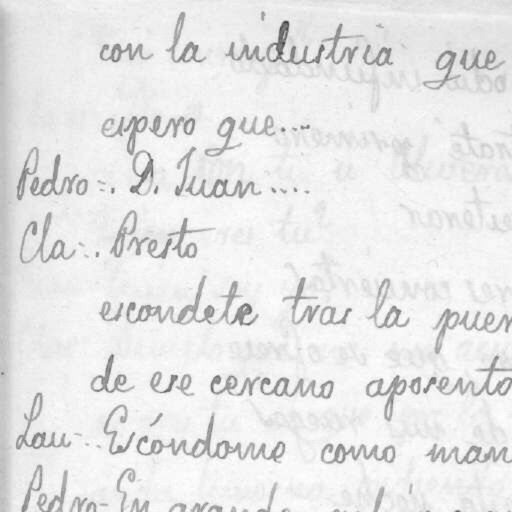 con la industria que
espero que...
Pedro=. D. Juan....
Cla-. Presto
escondete tras la puer
de ese cercano aposento
Lau-. Escóndome como man
Pedro- En grande